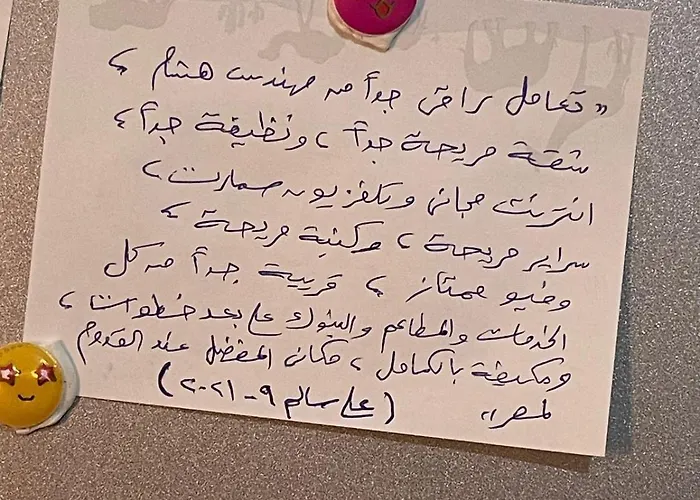 " تعامل راقى جداً من مهندس هشام ،
شقة مريحة جداً ، ونظيفة جداً ،
انترنت مجانى وتلفزيون سمارت ،
سراير مريحة ، وكنبة مريحة ،
وفيو ممتاز ، قريبة جداً من كل
الخدمات والمطاعم والبنوك على بعد خطوات ،
ومكيفة بالكامل ، مكانى المفضل عند القدوم
لمصر "
( على سالم ٩-٢٠٢١ )